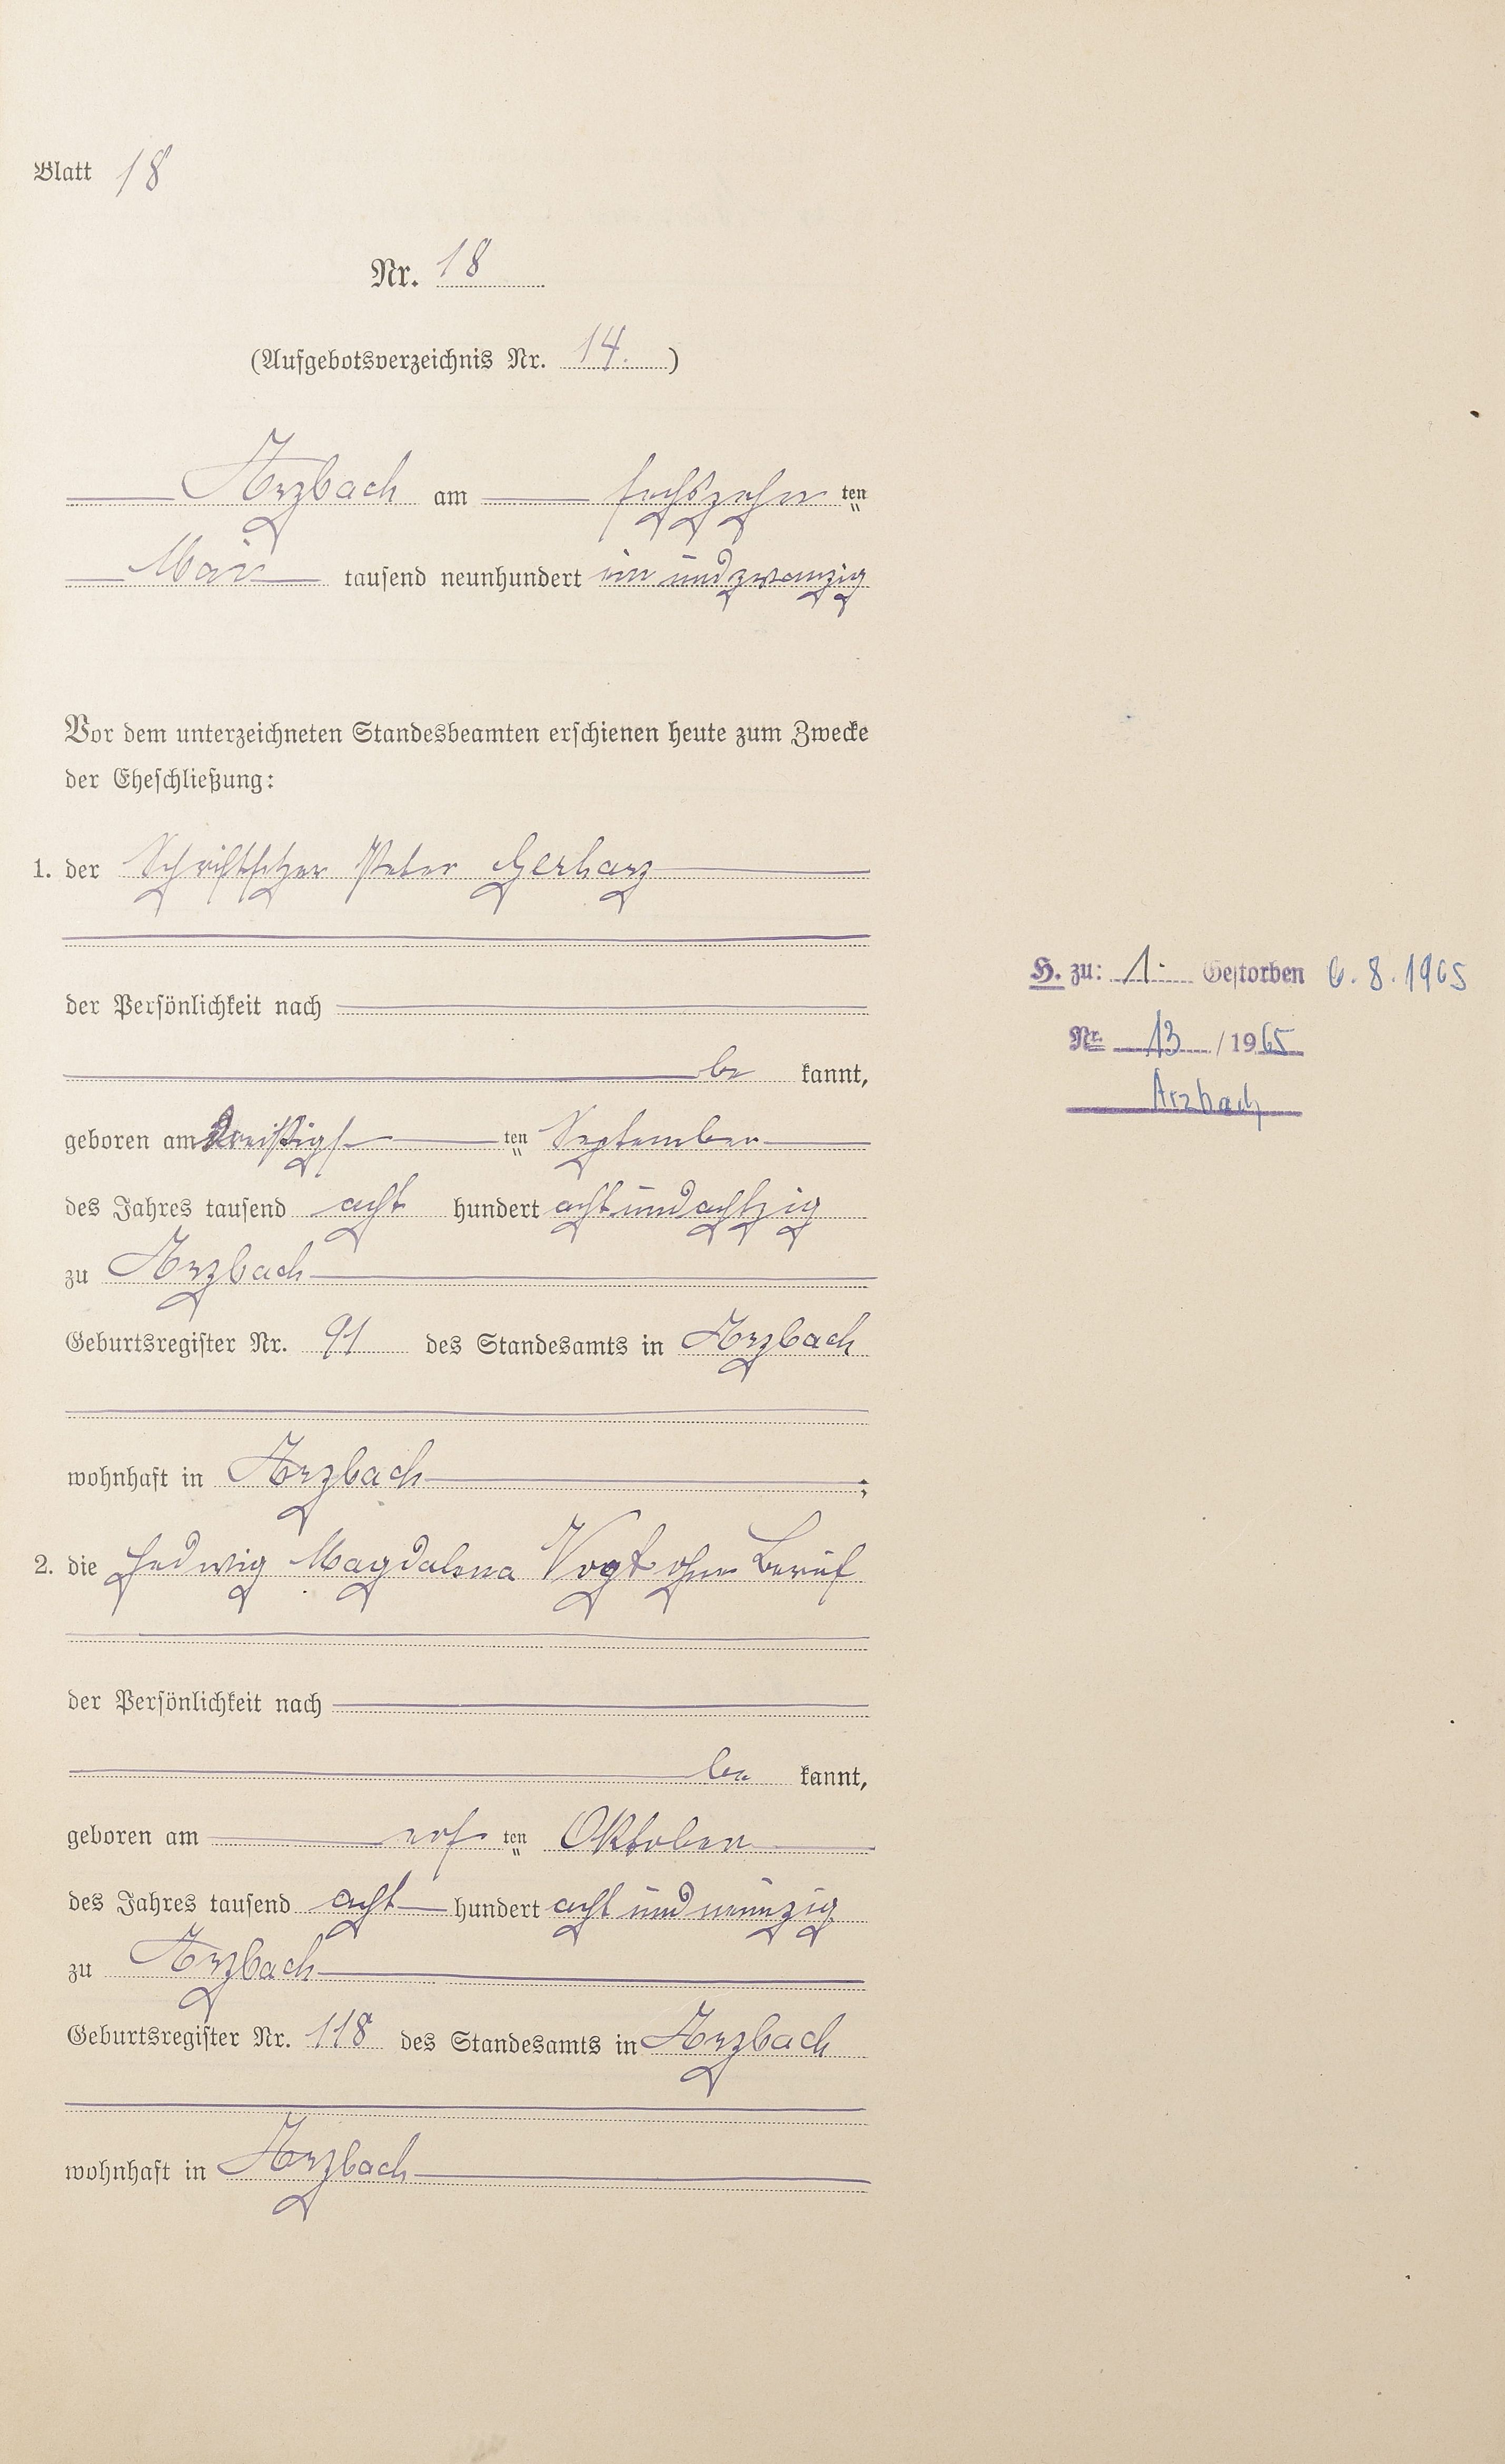 Blatt 18
Nr. 18
(Aufgebotsverzeichnis Nr. 14.)
Arzbach am sechszehn ten
Mai tausend neunhundert ein und zwanzig
Vor dem unterzeichneten Standesbeamten erschienen heute zum Zwecke
der Eheschließung:
1. der Schriftsetzer Peter Gerharz
der Persönlichkeit nach
be kannt,
geboren am dreißigs ten September
des Jahres tausend acht hundert acht und achtzig
zu Arzbach
Geburtsregister Nr. 91 des Standesamts in Arzbach
wohnhaft in Arzbach ;
2. die Hedwig Magdalena Vogt ohne Beruf
der Persönlichkeit nach
be kannt,
geboren am ers ten Oktober
des Jahres tausend acht hundert acht und neunzig
zu Arzbach
Geburtsregister Nr. 118 des Standesamts in Arzbach
wohnhaft in Arzbach
H. zu: 1. Gestorben 6.8.1965
Nr. 13 / 1965
Arzbach